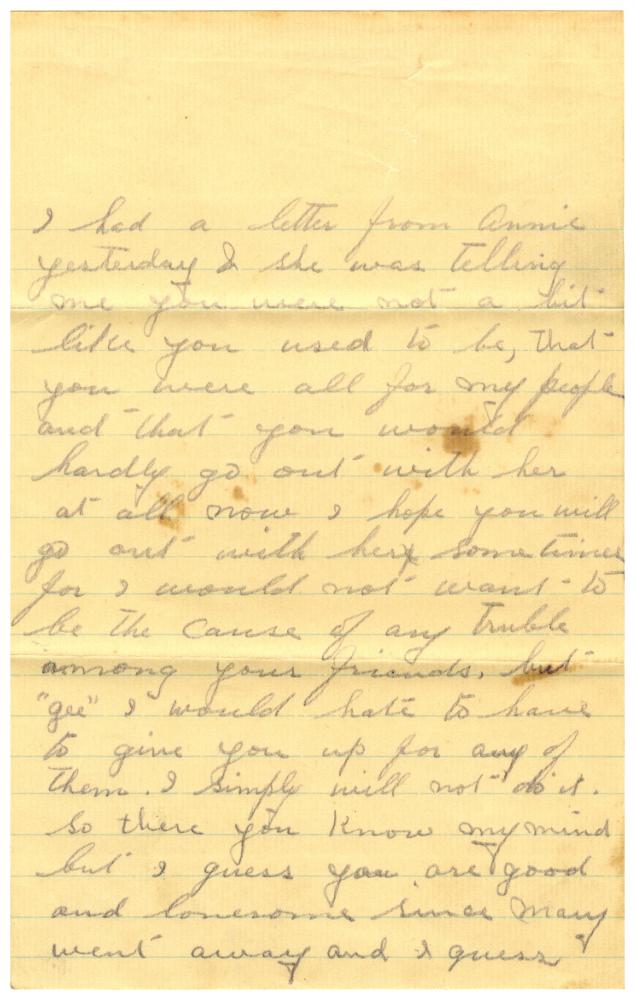 I had a letter from Annie
yesterday & she was telling
me you were not a bit
like you used to be, that
you were all for my people
and that you would
hardly go out with her
at all now I hope you will
go out with her sometimes
for I would not want to
be the cause of any truble
among your friends. but
"gee" I would hate to have
to give you up for any of
them. I simply will not do it.
so there you know my mind
but I guess you are good
and lonesome since Mary
went away and I guess